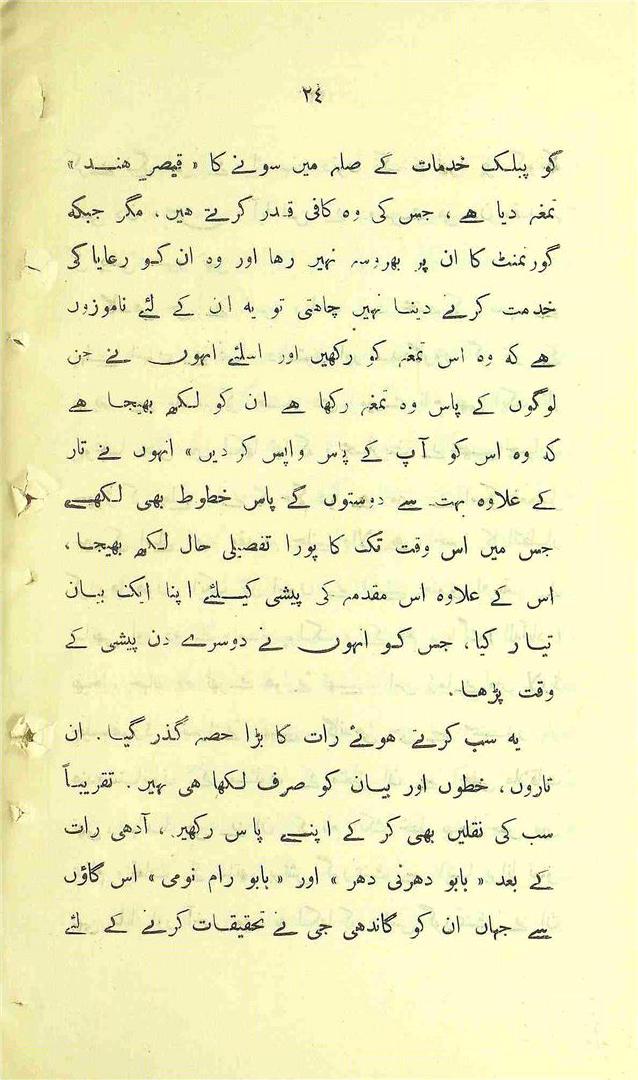 ٢٤
گو پبلک خدمات کے صلہ میں سونے کا « قیصر ھنـد »
تمغہ دیا ھے ، جس کی وہ کافی قدر کرتے ھیں ، مگر جبکہ
گورنمنٹ کا ان پر بھروسہ نہیں رھا اور وہ ان کو رعایا کی
خدمت کرنے دینا نہیں چاھتی تو یہ ان کے لئے ناموزوں
ھے کہ وہ اس تمغہ کو رکھیں اور اسلئے انہوں نے جن
لوگوں کے پاس وہ تمغہ رکھا ھے ان کو لکھ بھیجا ھے
کہ وہ اس کو آپ کے پاس واپس کر دیں » انہوں نے تار
کے علاوہ بہت سے دوستوں کے پاس خطوط بھی لکھے
جس میں اس وقت تک کا پورا تفصیلی حال لکھ بھیجا ،
اس کے علاوہ اس مقدمہ کی پیشی کیلئے اپنا ایک بیان
تیار کیا ، جس کو انہوں نے دوسرے دن پیشی کے
وقت پڑھا .
یہ سب کرتے ھوئے رات کا بڑا حصہ گذر گیا . ان
تاروں ، خطوں اور بیان کو صرف لکھا ھی نہیں . تقریباً
سب کی نقلیں بھی کر کے اپنے پاس رکھیں ، آدھی رات
کے بعد « بابو دھرنی دھر » اور « بابو رام نومی » اس گاؤں
سے جہاں ان کو گاندھی جی نے تحقیقات کرنے کے لئے